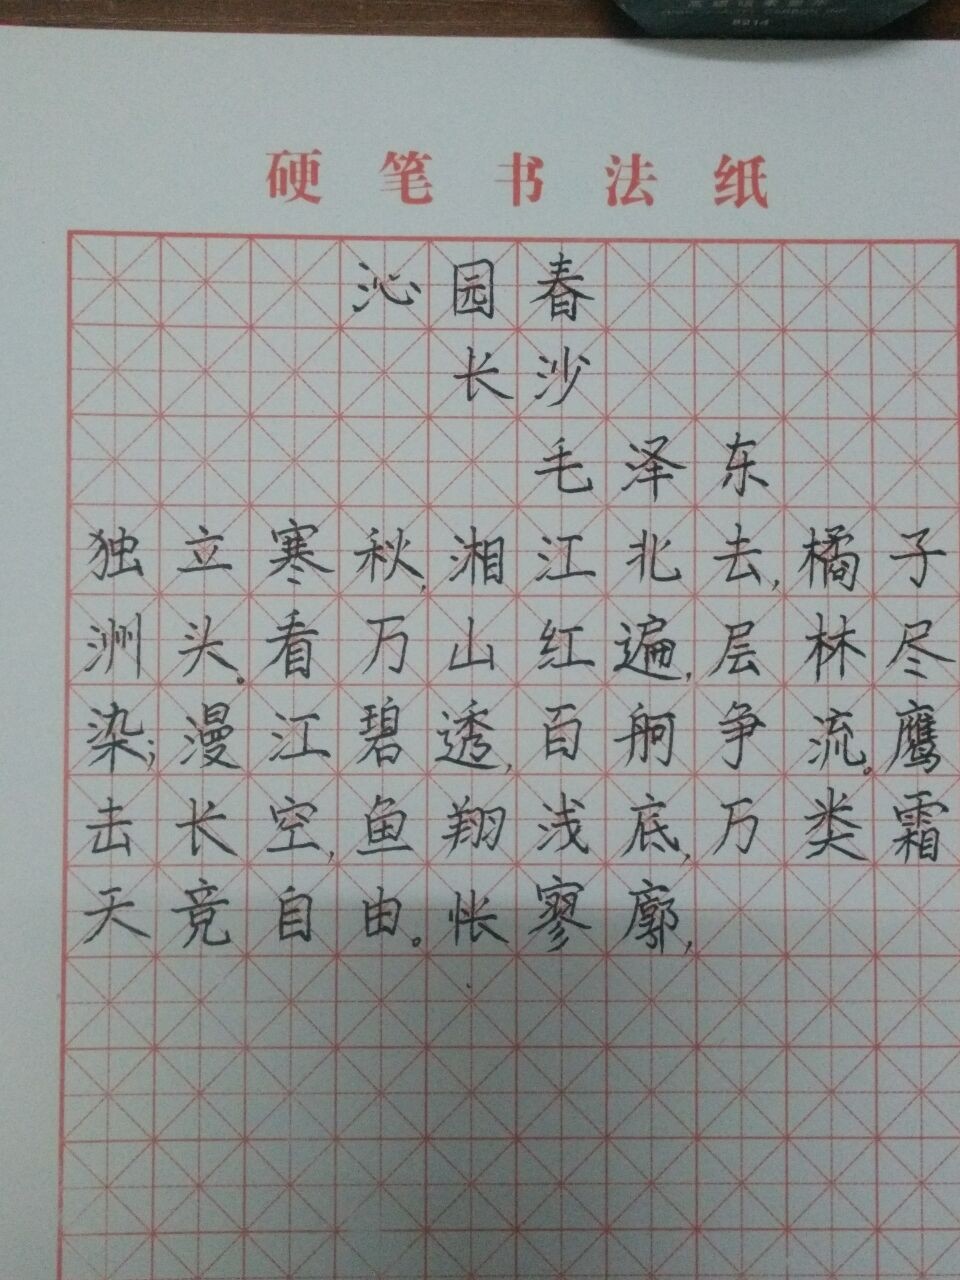 9214
硬笔书法纸
沁园春
长沙
毛泽东
独立寒秋,湘江北去,橘子
洲头。看万山红遍,层林尽
染;漫江碧透,百舸争流。鹰
击长空,鱼翔浅底,万类霜
天竞自由。怅寥廓,